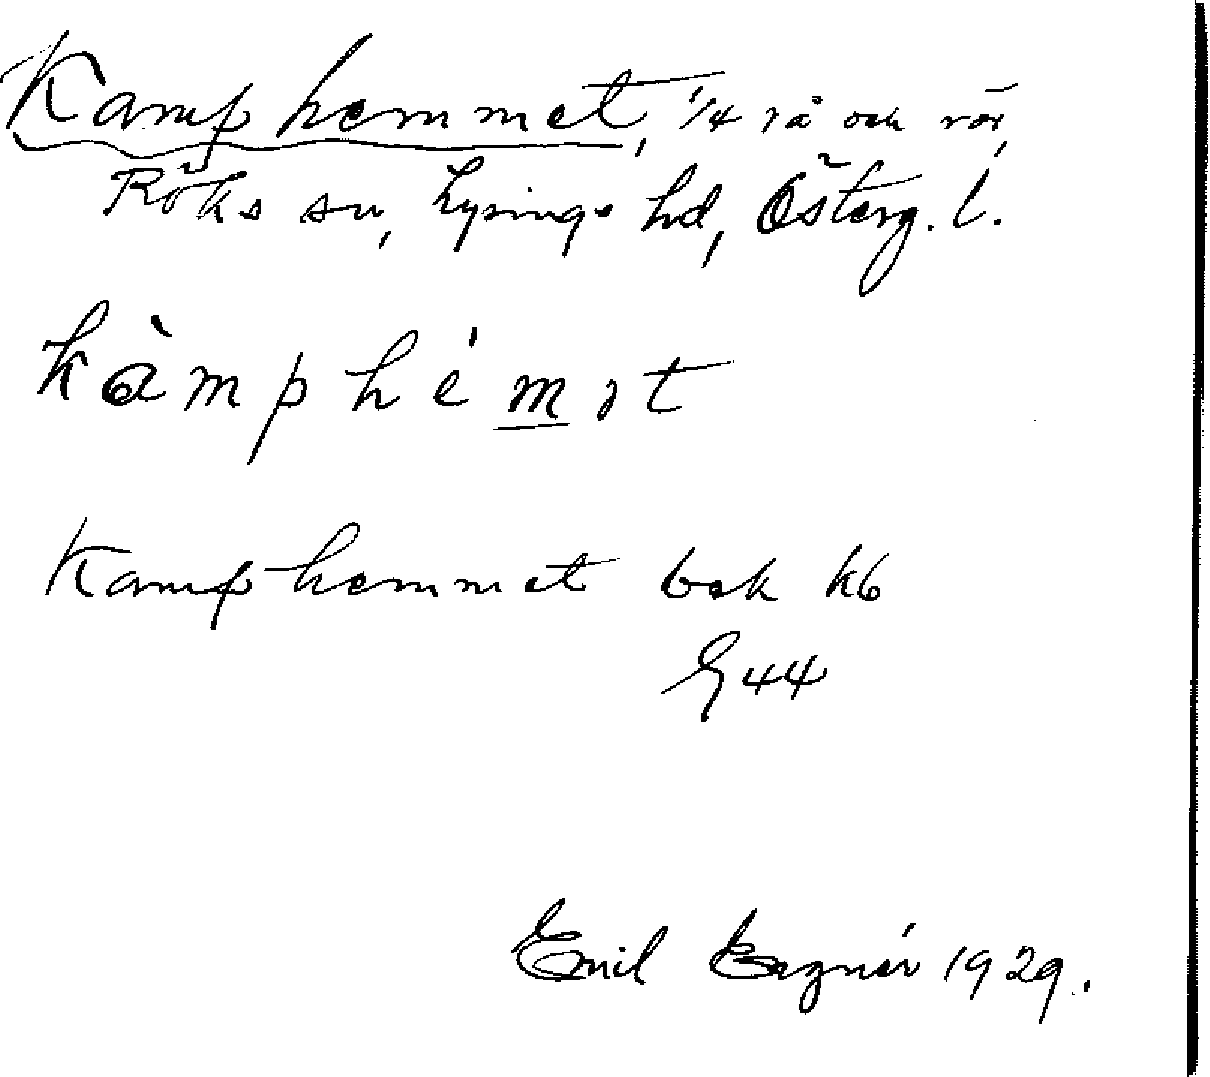 Kamphemmet, 1/4 rå och rör,
Röks sn, Lysings hd, Österg. l.
kàmphémət
Kamphemmet bok kb
G 44
Emil 1929.